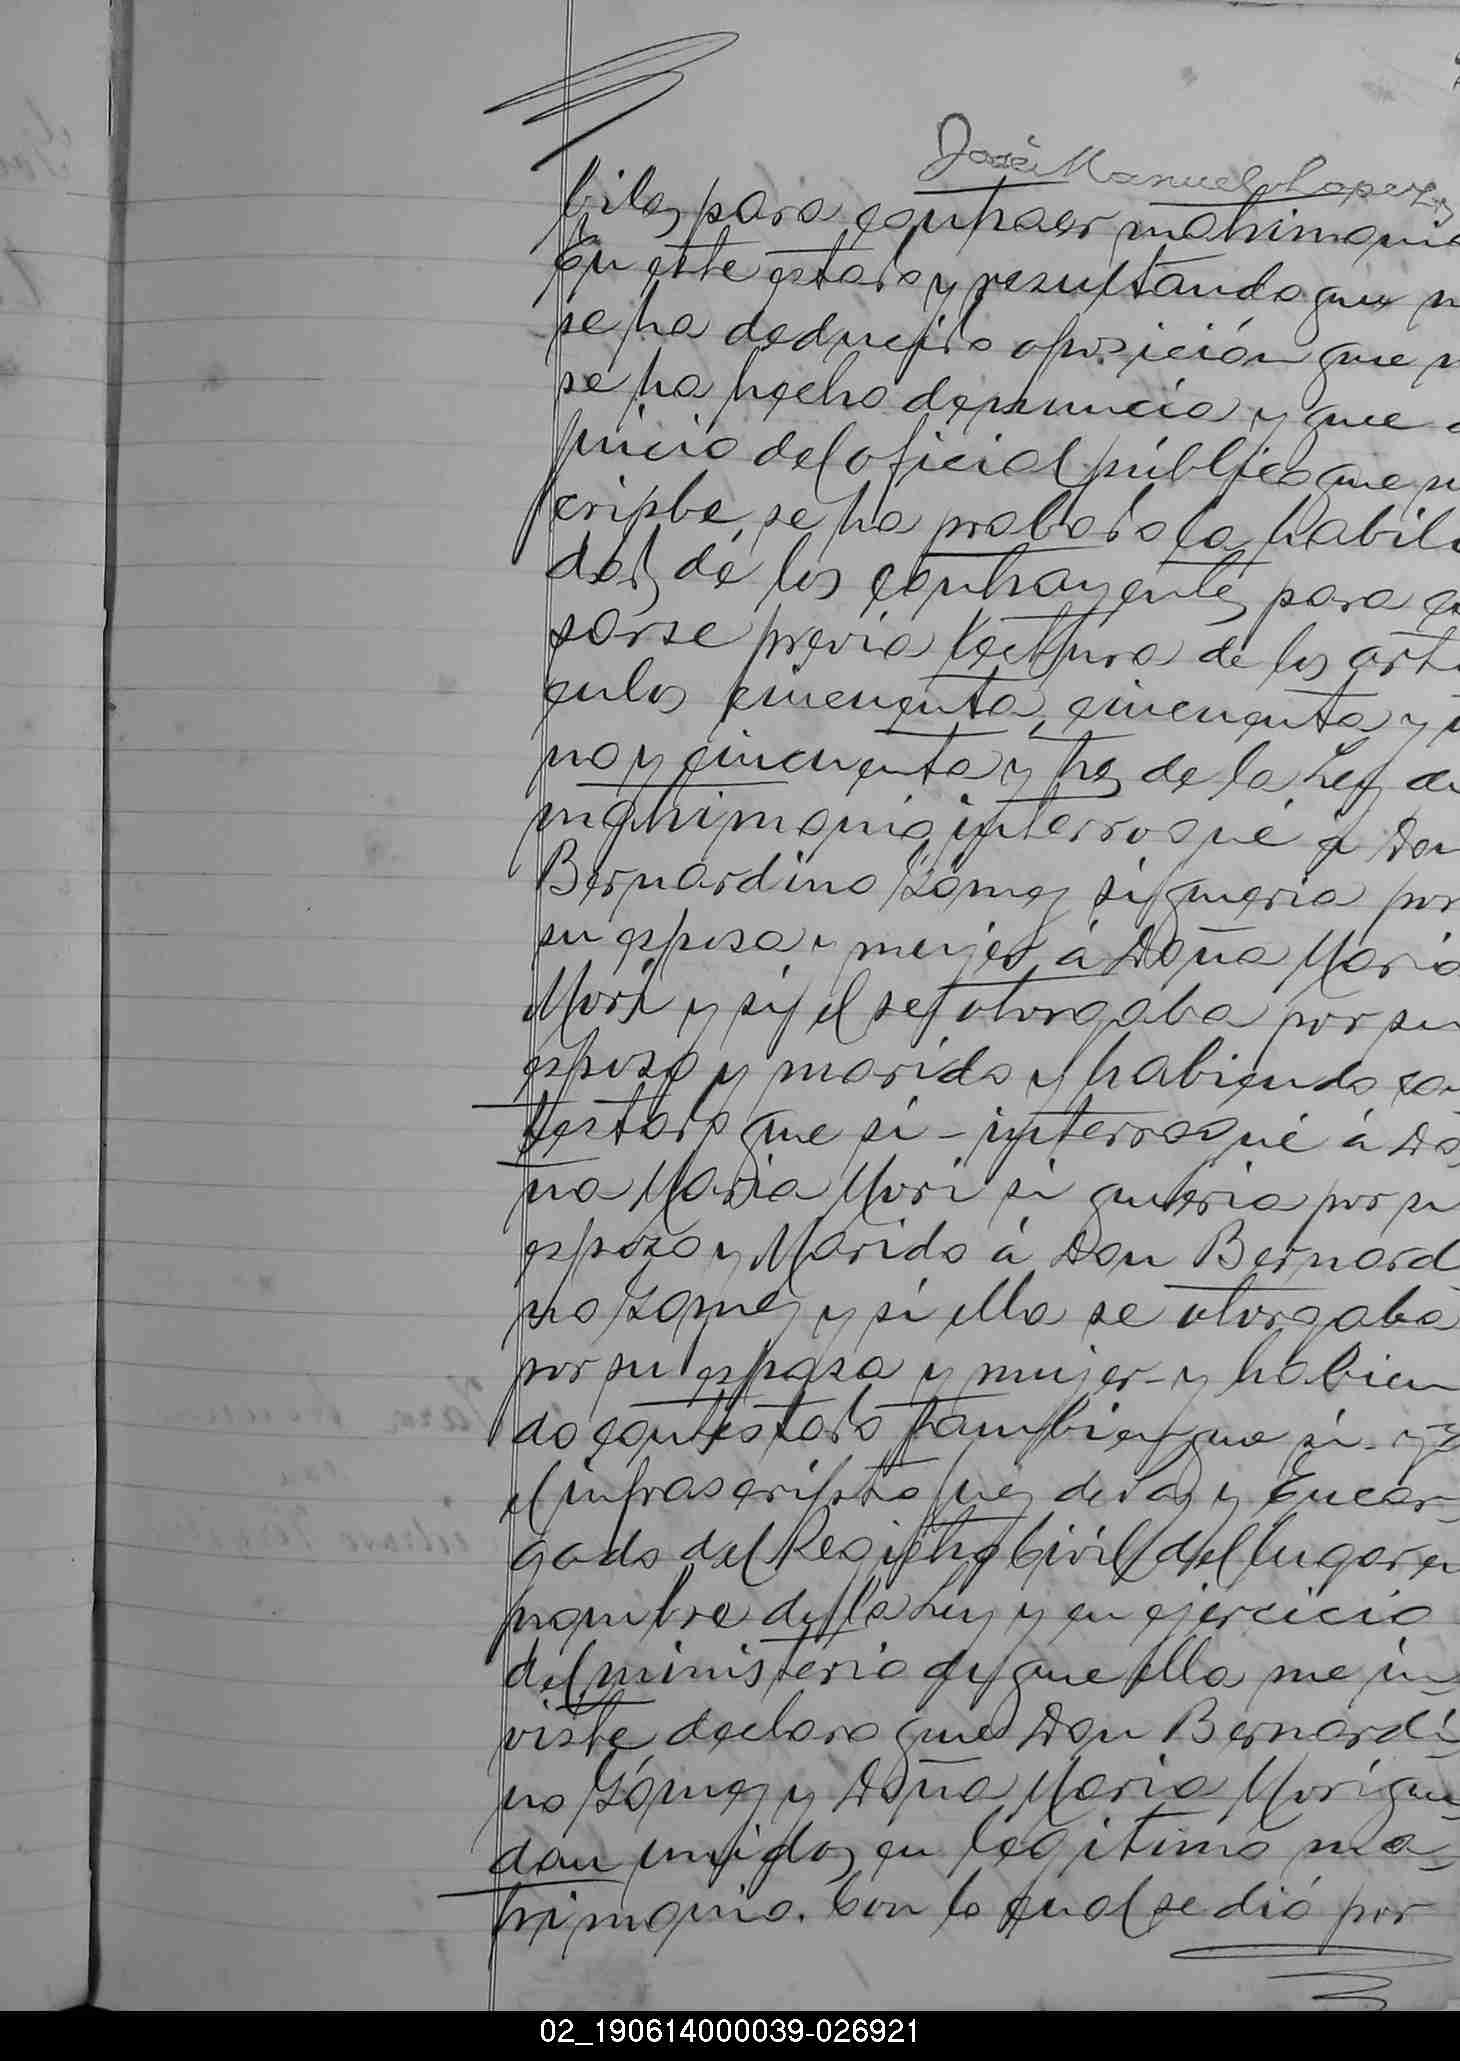 José Manuel Lopez
biles para contraer matrimonio
En este estado y resultando que n
se ha deducido oposición que n
se ha hecho denuncia y que a
juicio del oficial público que su
cripbe se ha probado la habili
dad de los contrayentes para ca
sarse previa lectura de los artí
culos cincuenta, cincuenta y u
no y cincuenta y tres de la Ley de
matrimonio interrogué a Don
Bernardino Gómez si queria por
su esposa y mujer á Doña Maria
Mori y si el se otorgaba por su
esposo y marido y habiendo con
testado que si - interrogué á Do
ña Maria Mori si queria por su
esposo y Marido á Don Bernard
no Gomez y si ella se otorgaba
por su esposa y mujer - y habien
do contestado tambien que si - yo
el infrascripto Juez de Paz y Encar-
gado del Registro Civil del lugar en
nombre de la Ley y en ejercicio
del ministerio de que ella me in-
viste declaro que Don Bernardi-
no Gómez y Doña Maria Mori que-
dan unidos en legitimo ma-
trimonio. Con lo cual se dió por
02_190614000039-026921